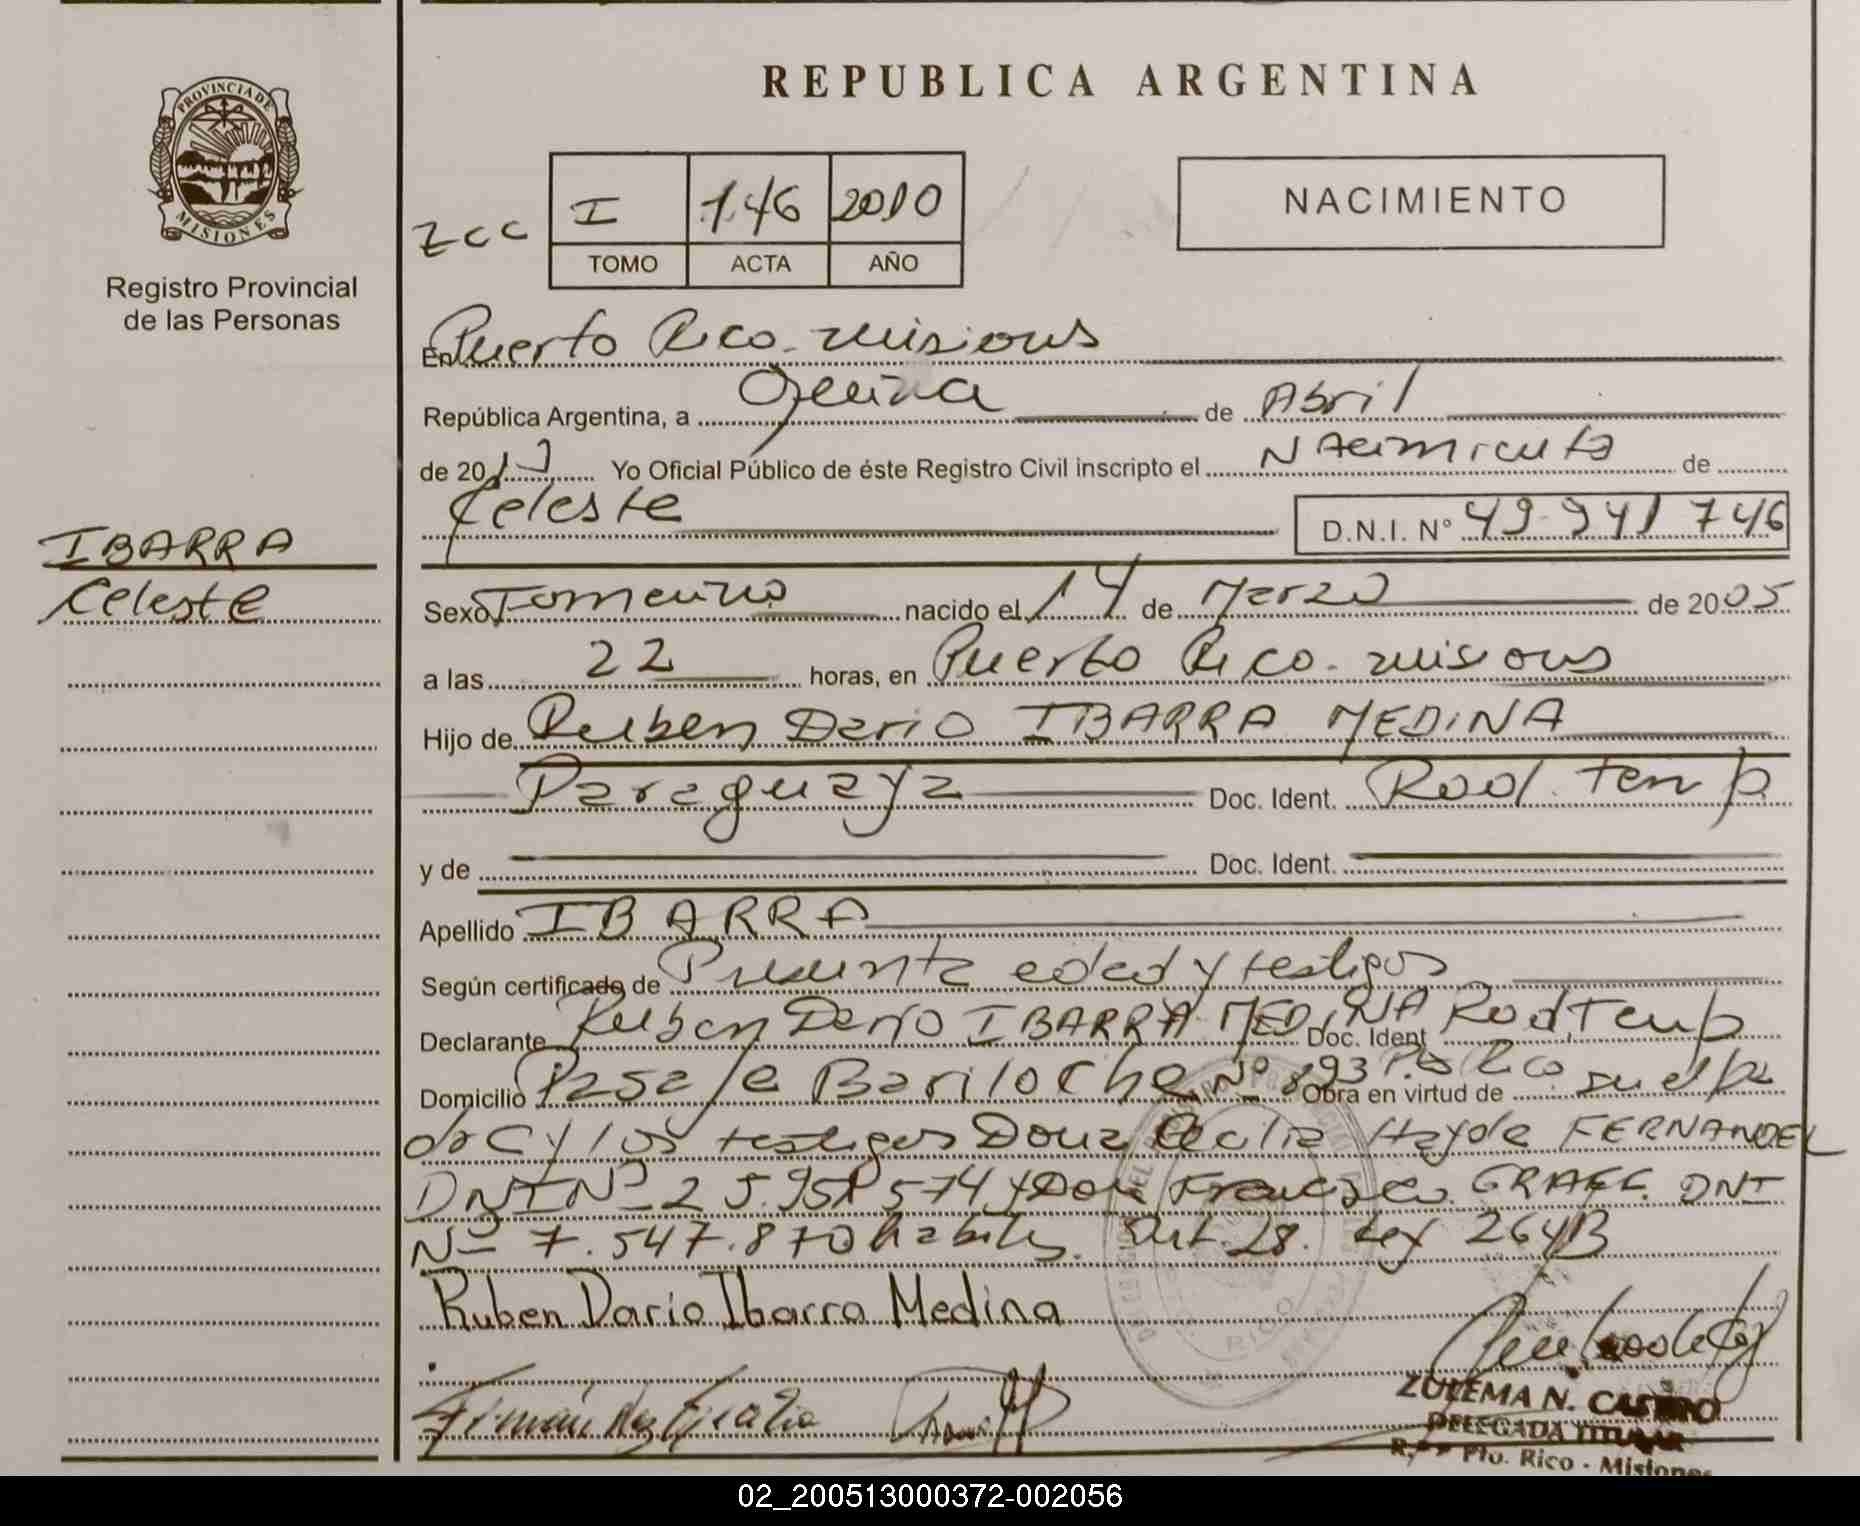 REPUBLICA ARGENTINA
PROVINCIA DE
MISIONES
Registro Provincial
de las Personas
ZCC
I 146 2010
TOMO ACTA AÑO
NACIMIENTO
En Puerto Rico - Misiones
República Argentina, a Quince de Abril
de 2010 Yo Oficial Público de éste Registro Civil inscripto el Nacimiento de
Celeste
D.N.I. Nº 49-941 746
IBARRA
Celeste
Sexo Femenino nacido el 14 de Marzo de 2005
a las 22 horas, en Puerto Rico - Misiones
Hijo de Ruben Dario IBARRA MEDINA
Paraguaya Doc. Ident. Rad. temp
y de Doc. Ident.
Apellido IBARRA
Según certificado de Presunta edad y testigos
Declarante Ruben Dario IBARRA MEDINA Doc. Ident Rad Temp
Domicilio Pasaje Bariloche Nº 893 Pto Rico Obra en virtud de su el pa
dre y los testigos Doña Cecilia Hayde FERNANDEZ
DNI Nº 25.951 574 y Don Francisco GRAFF DNI
Nº 7.547.870 habiles. Art. 28. Ley 26413
Ruben Dario Ibarra Medina
ZULEMA N. CASTRO
DELEGADA TITULAR
Pto. Rico - Misiones
02_200513000372-002056